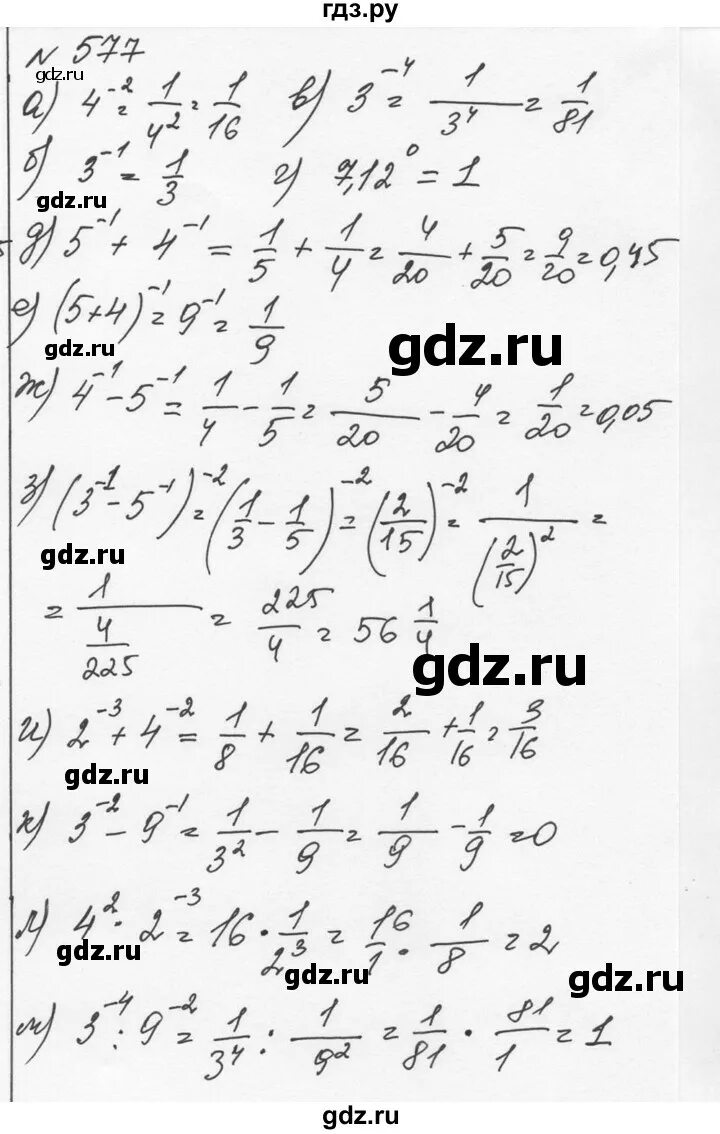 гдз.ру
№ 577
gdz.ru
а) 4⁻² = 1/4² = 1/16 в) 3⁻⁴ = 1/3⁴ = 1/81
б) 3⁻¹ = 1/3 г) 7,12⁰ = 1
gdz.ru
д) 5⁻¹ + 4⁻¹ = 1/5 + 1/4 = 4/20 + 5/20 = 9/20 = 0,45
е) (5+4)⁻¹ = 9⁻¹ = 1/9
gdz.ru gdz.ru
ж) 4⁻¹ - 5⁻¹ = 1/4 - 1/5 = 5/20 - 4/20 = 1/20 = 0,05
gdz.ru
з) (3⁻¹ - 5⁻¹)⁻² = (1/3 - 1/5)⁻² = (2/15)⁻² = 1/(2/15)² =
gdz.ru
= 1/(4/225) = 225/4 = 56 1/4
gdz.ru
и) 2⁻³ + 4⁻² = 1/8 + 1/16 = 2/16 + 1/16 = 3/16
gdz.ru
к) 3⁻² - 9⁻¹ = 1/3² - 1/9 = 1/9 - 1/9 = 0
gdz.ru
л) 4² · 2⁻³ = 16 · 1/2³ = 16/1 · 1/8 = 2
gdz.ru gdz.ru gdz.ru
м) 3⁻⁴ : 9⁻² = 1/3⁴ : 1/9² = 1/81 · 81/1 = 1
gdz.ru